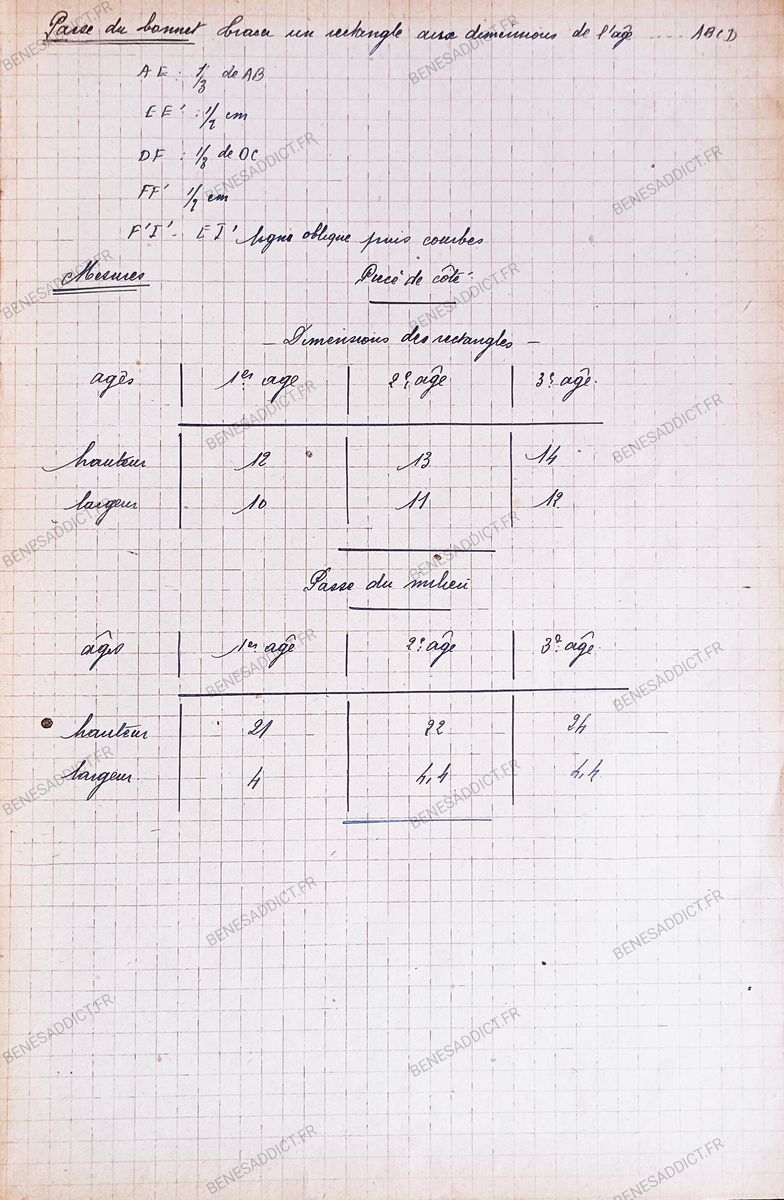 Passe du bonnet tracer un rectangle aux dimensions de l'âge .... ABCD
AE : 1/3 de AB
EE' : 1/2 cm
DF : 1/3 de DC
FF' 1/2 cm
F'I' - EI' ligne oblique puis courbes
Mesures
Piece de côté
- Dimensions des rectangles -
ages | 1er age | 2e âge | 3e âge.
hauteur | 12 | 13 | 14
largeur | 10 | 11 | 12
Passe du milieu
âges | 1er âge | 2e âge | 3e âge
hauteur | 21 | 22 | 24
largeur | 4 | 4,4 | 4,4
BENESADDICT.FR